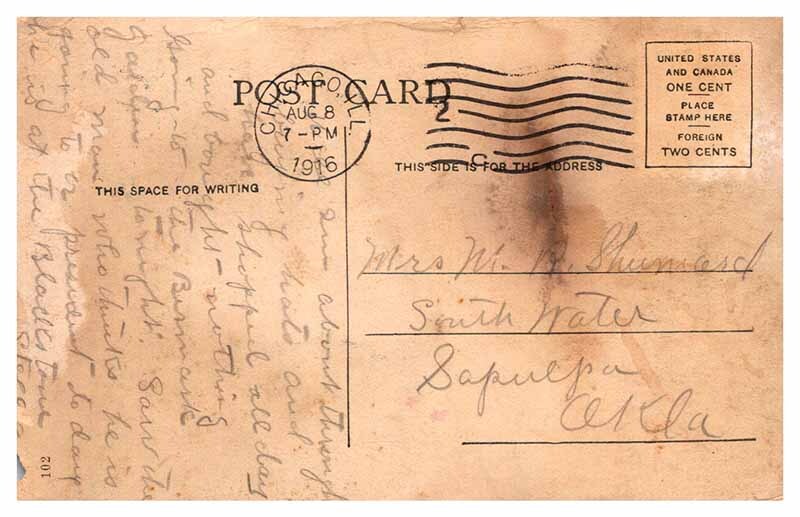 POST CARD
CHICAGO, ILL.
AUG 8
7-PM
1916
2
C
UNITED STATES
AND CANADA
ONE CENT
PLACE
STAMP HERE
FOREIGN
TWO CENTS
THIS SPACE FOR WRITING
THIS SIDE IS FOR THE ADDRESS
am about through
hats and
shopped all day
and bought - nothing
Going to the Bismarck
Garden tonight. Saw the
old man who thinks he is
going to be president to day
he is at the Blackstone
Stella
Mrs M. R. Shumard
South Water
Sapulpa
Okla
102